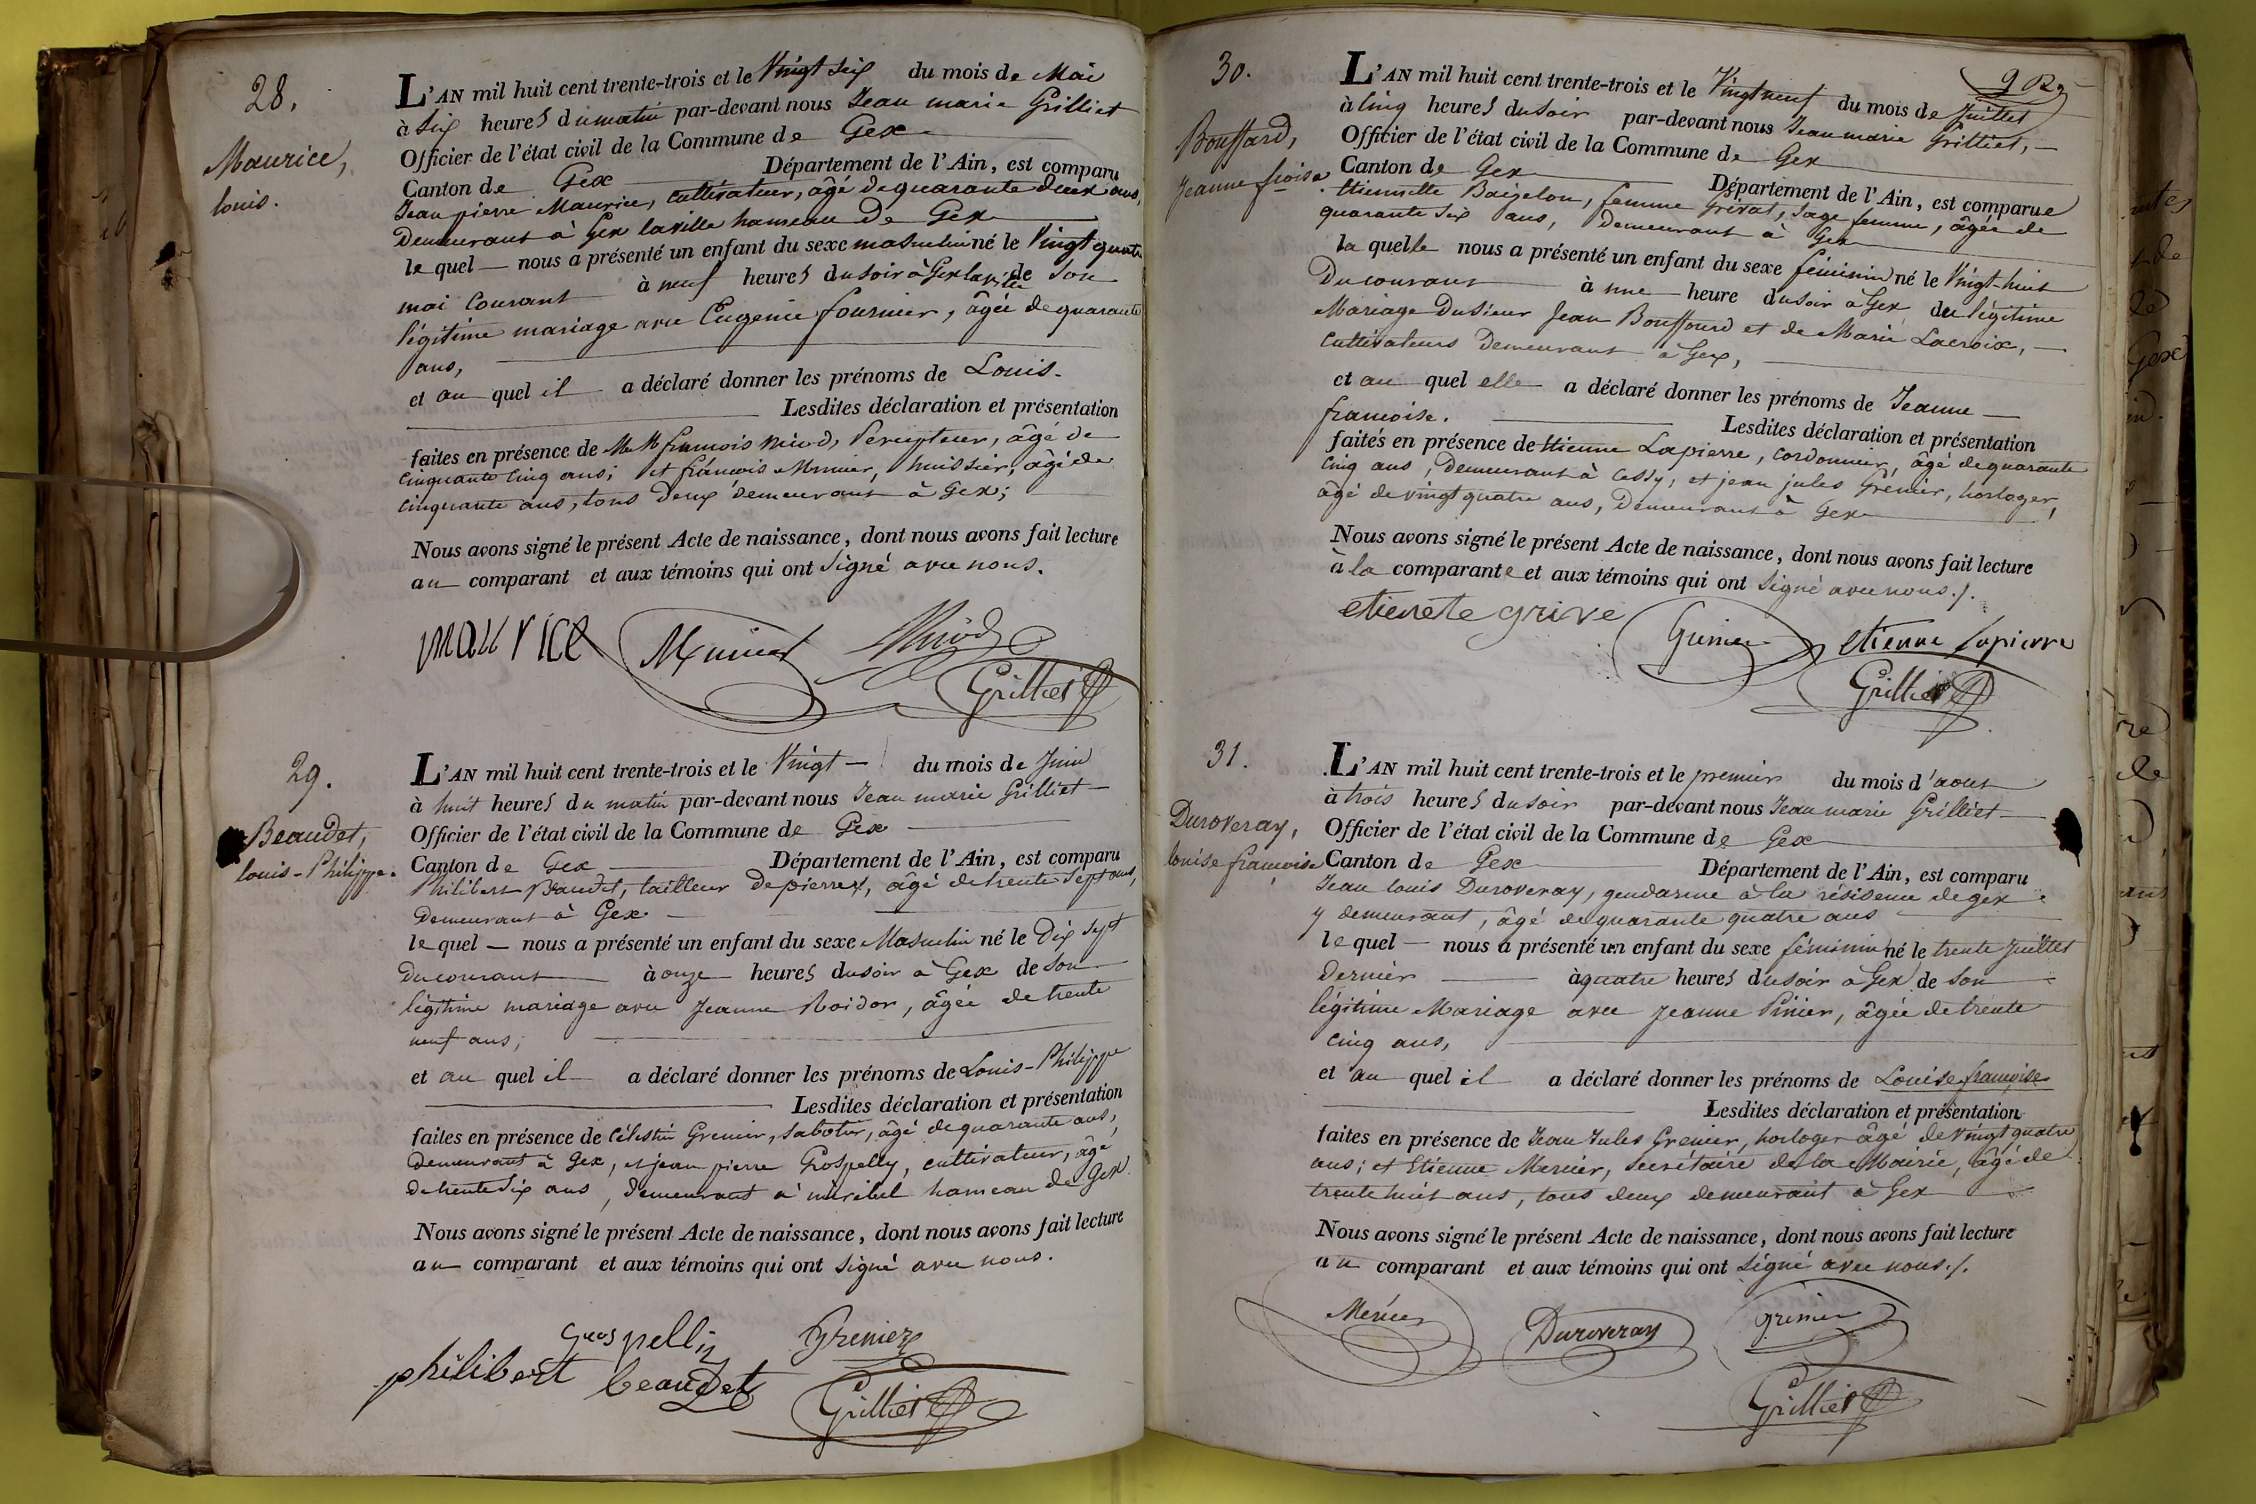 28.
Maurice,
louis.
L'AN mil huit cent trente-trois et le Vingt six du mois de Mai
à six heures du matin par-devant nous Jean marie Grilliet
Officier de l'état civil de la Commune de Gex
Canton de Gex Département de l'Ain, est comparu
Jean pierre Maurice, cultivateur, âgé de quarante deux ans,
demeurant à Gex la ville hameau de Gex
le quel — nous a présenté un enfant du sexe masculin né le Vingt quatre
mai courant à neuf heures du soir à Gex la ville de son
légitime mariage avec Eugenie fournier, âgée de quarante
ans,
et au quel il a déclaré donner les prénoms de Louis.
Lesdites déclaration et présentation
faites en présence de MM françois Nicod, Percepteur, âgé de
cinquante cinq ans; et françois Munier, huissier, âgé de
cinquante ans, tous deux demeurant à Gex;
Nous avons signé le présent Acte de naissance, dont nous avons fait lecture
au comparant et aux témoins qui ont signé avec nous.
maurice Munier Nicod
Grilliet
29.
Beaudet,
louis-Philippe.
L'AN mil huit cent trente-trois et le Vingt — du mois de Juin
à huit heures du matin par-devant nous Jean marie Grilliet —
Officier de l'état civil de la Commune de Gex
Canton de Gex Département de l'Ain, est comparu
Philibert Beaudet, tailleur de pierres, âgé de trente sept ans,
demeurant à Gex
le quel — nous a présenté un enfant du sexe Masculin né le Dix sept
du courant à onze heures du soir à Gex de son
légitime mariage avec Jeanne Roidor, âgée de trente
neuf ans;
et au quel il a déclaré donner les prénoms de Louis-Philippe
Lesdites déclaration et présentation
faites en présence de Célestin Grenier, sabotier, âgé de quarante ans,
demeurant à Gex, et jean pierre Grospelly, cultivateur, âgé
de trente six ans, demeurant à mirebel hameau de Gex.
Nous avons signé le présent Acte de naissance, dont nous avons fait lecture
au comparant et aux témoins qui ont signé avec nous.
Grospelly Grenier
philibert beaudet
Grilliet
30.
Bouffard,
Jeanne froise.
L'AN mil huit cent trente-trois et le Vingt neuf du mois de Juillet
à cinq heures du soir par-devant nous Jean marie Grilliet, —
Officier de l'état civil de la Commune de Gex
Canton de Gex Département de l'Ain, est comparue
Etiennette Baizelon, femme Grivat, sage femme, âgée de
quarante six ans, demeurant à Gex
la quelle nous a présenté un enfant du sexe féminin né le Vingt-huit
Du courant à une heure du soir à Gex du légitime
Mariage du sieur Jean Bouffard et de Marie Lacroix, —
cultivateurs demeurant à Gex,
et au quel elle a déclaré donner les prénoms de Jeanne —
françoise.
Lesdites déclaration et présentation
faites en présence de Etienne Lapierre, cordonnier, âgé de quarante
cinq ans, demeurant à Cessy, et jean jules Grenier, horloger,
âgé de vingt quatre ans, demeurant à Gex
Nous avons signé le présent Acte de naissance, dont nous avons fait lecture
à la comparante et aux témoins qui ont signé avec nous./.
etienete grive Grenier etienne lapierre
Grilliet
31.
Duroveray,
louise françoise
L'AN mil huit cent trente-trois et le premier du mois d'aout
à trois heures du soir par-devant nous Jean marie Grilliet —
Officier de l'état civil de la Commune de Gex
Canton de Gex Département de l'Ain, est comparu
Jean louis Duroveray, gendarme à la résidence de gex
y demeurant, âgé de quarante quatre ans
le quel — nous a présenté un enfant du sexe féminin né le trente Juillet
dernier à quatre heures du soir à Gex de son
légitime Mariage avec Jeanne Pinier, âgée de trente
cinq ans,
et au quel il a déclaré donner les prénoms de Louise françoise
Lesdites déclaration et présentation
faites en présence de Jean Jules Grenier, horloger âgé de vingt quatre
ans; et Etienne Mercier, secrétaire de la Mairie, âgé de
trente huit ans, tous deux demeurant à Gex
Nous avons signé le présent Acte de naissance, dont nous avons fait lecture
au comparant et aux témoins qui ont signé avec nous./.
Mercier Duroveray grenier
Grilliet